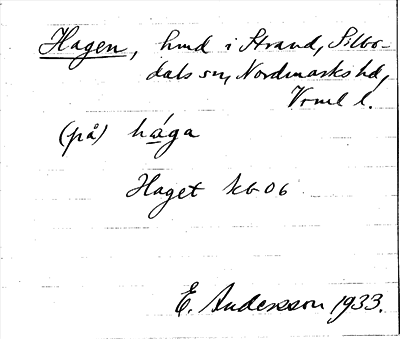 Hagen, hmd i Strand, Silbo-
dals sn, Nordmarks hd,
Vrml l.
(på) hága
Haget kb 06
E. Andersson 1933.